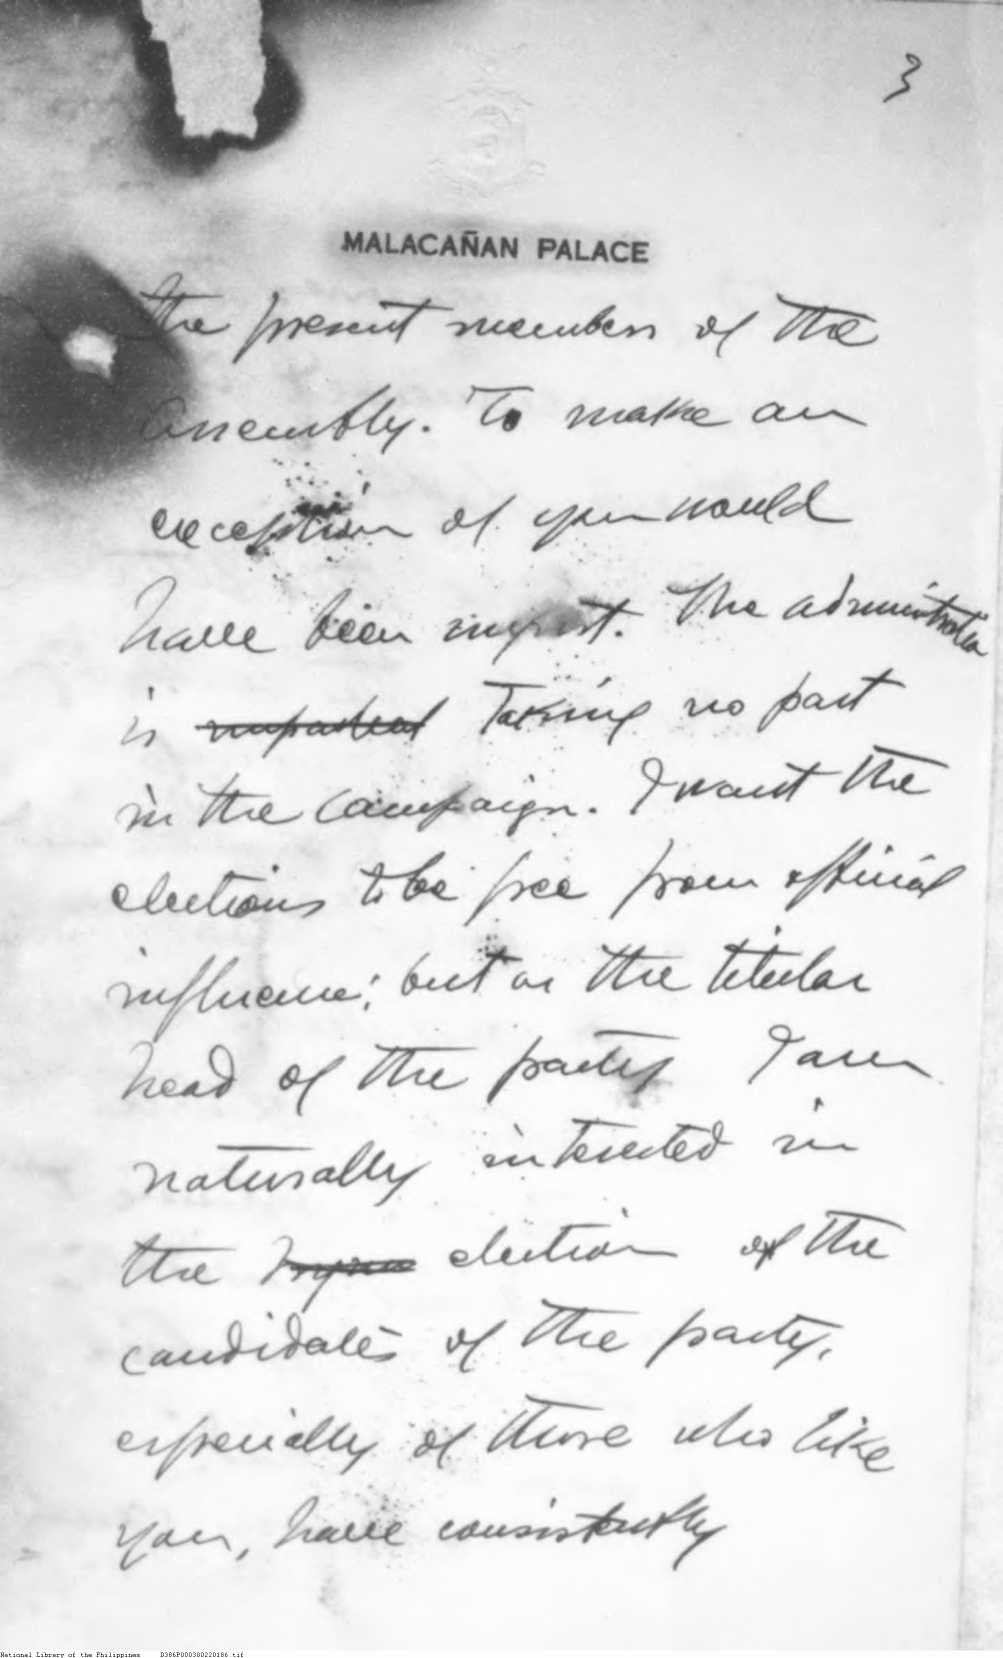 3
MALACAÑAN PALACE
the present members of the
Assembly. To make an
exception of you would
have been unjust. The administration
is impartial taking no part
in the campaign. I want the
elections to be free from official
influence; but as the titular
head of the party I am
naturally interested in
the election of the
candidates of the party,
especially of those who like
you, have consistently
National Library of the Philippines D386P000300220186.tif